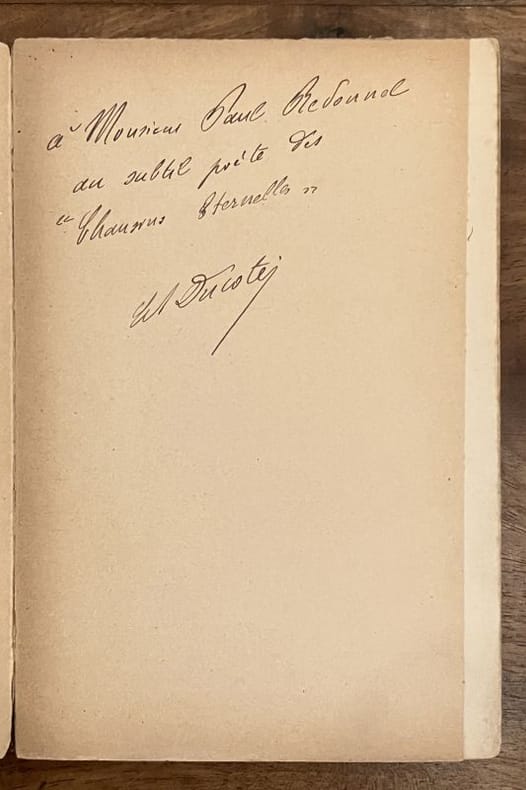 à Monsieur Paul Redonnel
au subtil poète des
" Chansons Eternelles "
Ed Ducoté